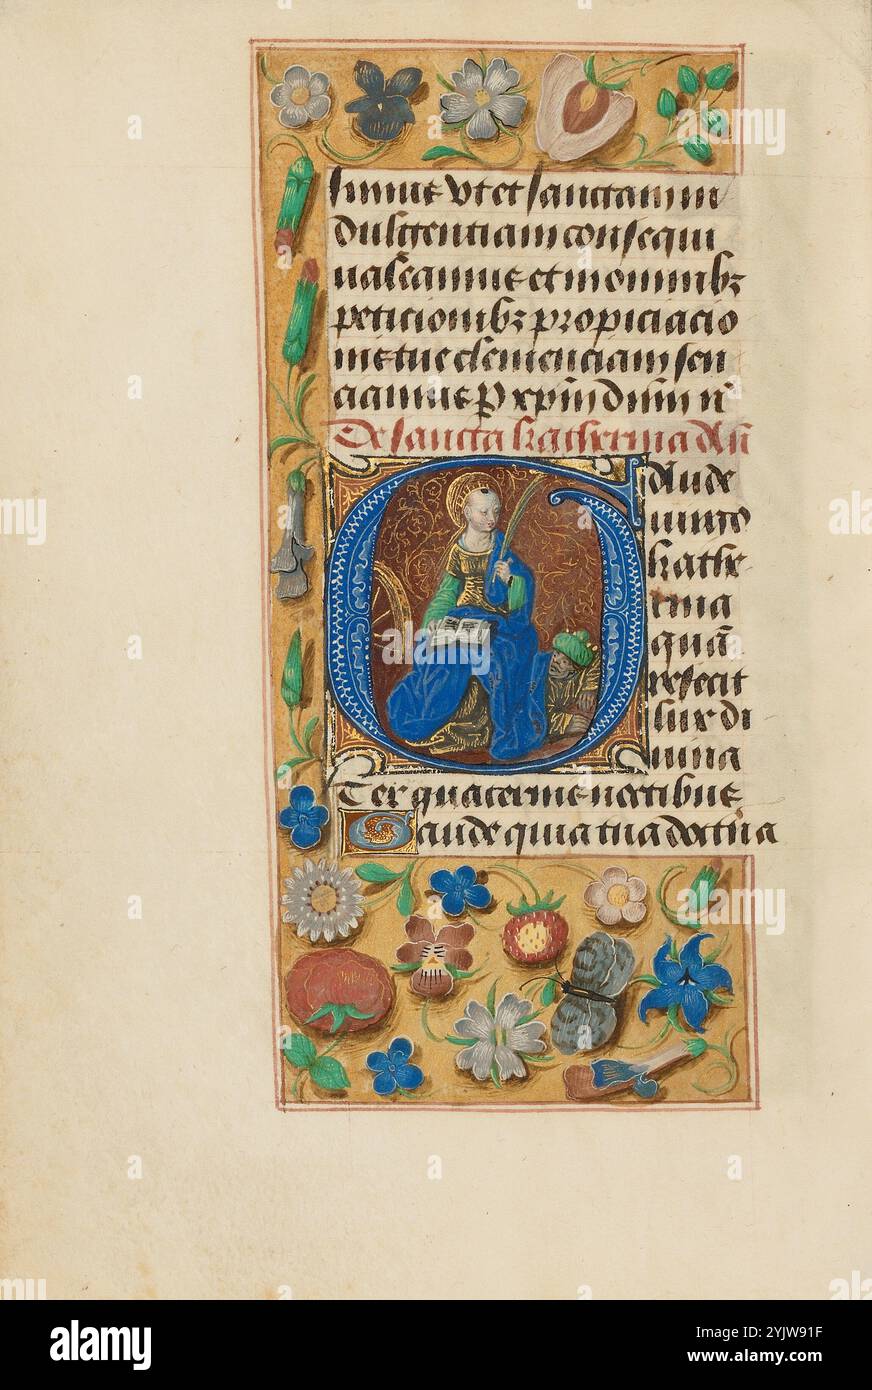 simue ut et sanctam in
dulgentiam consequi
valeamue et in omnibꝫ
peticionibꝫ propiciacio
nē tue clemenciam sen
ciamue p̲ xp̄m dn̄m nr̄
De sancta katherina añ
Gaude
virgo
kathe
rina
quā
refecit
lux di
uina
Ter quaterne noctibue
Gaude quia tua doctīa
alamy
Image ID: 2YJW91F
www.alamy.com